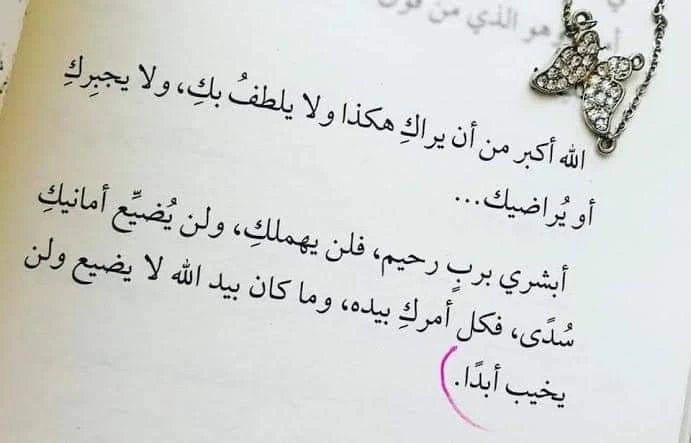 وهو الذي من
الله أكبر من أن يراكِ هكذا ولا يلطفُ بكِ، ولا يجبِركِ
أو يُراضيك...
أبشري بربٍ رحيم، فلن يهملكِ، ولن يُضيِّع أمانيكِ
سُدًى، فكل أمركِ بيده، وما كان بيد الله لا يضيع ولن
يخيب أبدًا.